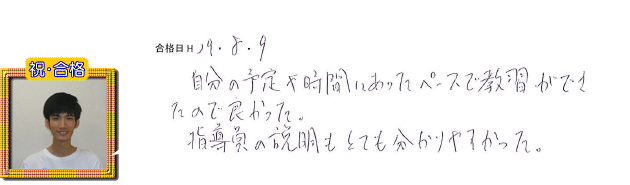 祝・合格
合格日H 29.8.9
自分の予定や時間にあったペースで教習ができ
たので良かった。
指導員の説明もとても分かりやすかった。